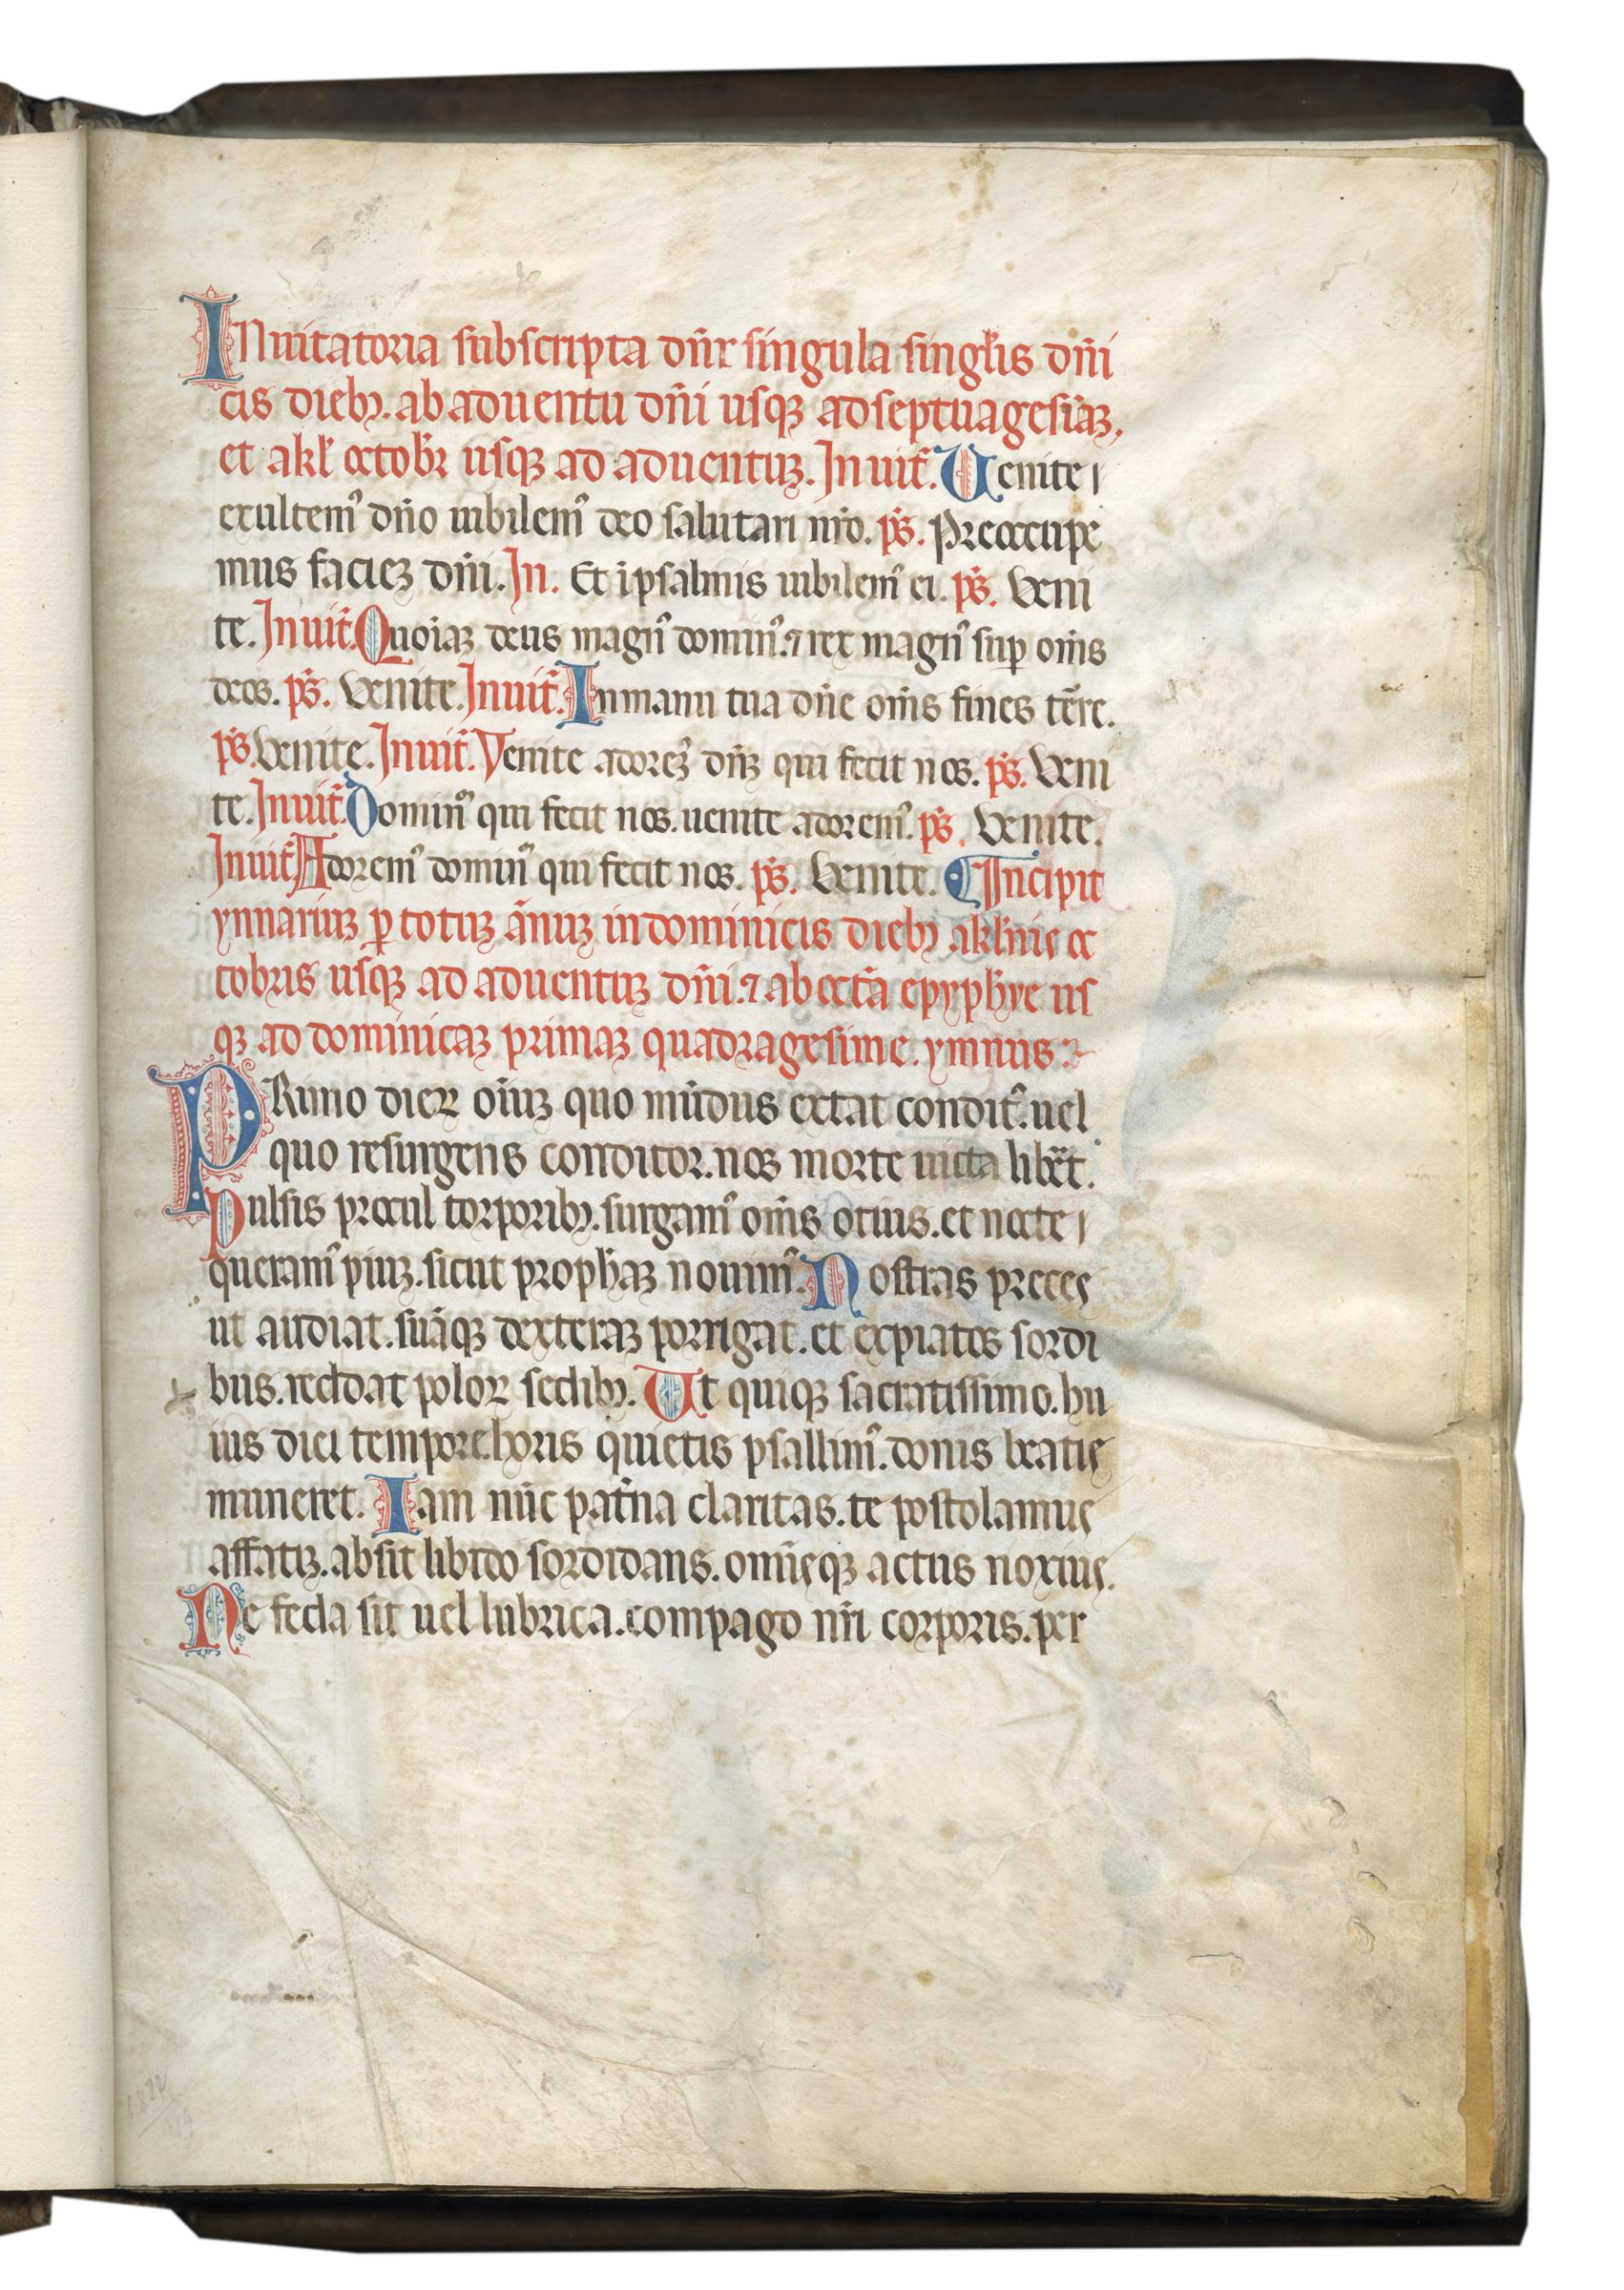 Inuitatoria subscripta dn̄r singula singl'is dn̄i
cis dieb₃. ab aduentu dn̄i usq₃ ad septuagesīa₃.
et a kl' octobr̄ usq₃ ad aduentu₃. Inuit̄. Uenite
exultem᾿ dn̄o iubilem᾿ deo salutari nr̄o. ps̄. Preoccupe
mus facie₃ dn̄i. In. Et ī psalmis iubilem᾿ ei. ps̄. Veni
te. Inuit̄. Quoia₃ deus magn᾿ domin᾿. ⁊ rex magn᾿ suꝑ om̄s
deos. ps̄. Venite. Inuit̄. In manu tua dn̄e om̄s fines tēre.
ps̄. Venite. Inuit̄. Venite adorem᾿ dn̄₃ qui fecit nos. ps̄. Veni
te. Inuit̄. Domin᾿ qui fecit nos. uenite adorem᾿. ps̄. Venite.
Inuit̄ Adorem᾿ dominū qui fecit nos. ps̄. Venite. Incipit
ynnariu₃ ꝑ totu₃ ānu₃ in dominicis dieb₃ a kl'nis oc
tobris usq₃ ad aduentu₃ dn̄i. ⁊ ab octā epyphye us
q₃ ad dominica₃ prima₃ quadragesime. ymnus.
PRimo dieꝝ oīu₃ quo mūdus extat condit᾿. uel
quo resurgens conditor. nos morte uicta lib̄et.
Pulsis procul torporib₃. surgam᾿ om̄s otius. et nocte
queram᾿ piu₃. sicut proph̄a₃ nouim᾿. Nostras preces
ut audiat. suāq₃ dextera₃ porrigat. et expiatos sordi
bus. reddat poloꝝ sedib₃. Ut quiq₃ sacratissimo. hu
ius diei tempore. horis quietis psallim᾿. donis beatis
muneret. Iam nūc pat̄na claritas. te postolamus
affati₃. absit libido sordidans. omīsq₃ actus noxius.
Ne feda sit uel lubrica. compago nr̄i corporis. per